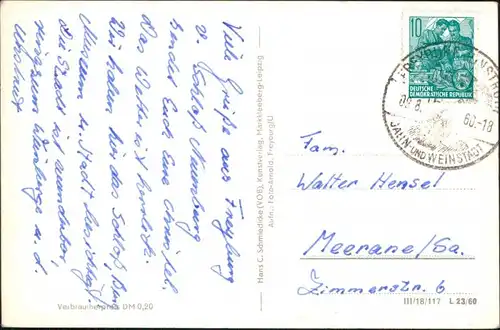 Viele Grüße aus Freyburg
v. Schloß Neuenburg
sendet Euch Eure Annel.
Das Wetter ist herrlich.
Wir haben hier das Schloß, Burg
Museum u. Stadt besichtigt.
Die Stadt ist wunderbar,
ringsum Weinberge u. d.
Unstrut
Verbraucherpreis DM 0,20
Hans C. Schmiedicke (VOB), Kunstverlag, Markkleeberg-Leipzig
Aufn.: Foto-Arnold, Freyburg/U
10
DEUTSCHE
DEMOKRATISCHE REPUBLIK
FREYBURG (UNSTRUT)
60.-18
JAHN- UND WEINSTADT
Fam.
Walter Hensel
Meerane/Sa.
Zimmerstr. 6
III/18/117 L 23/60